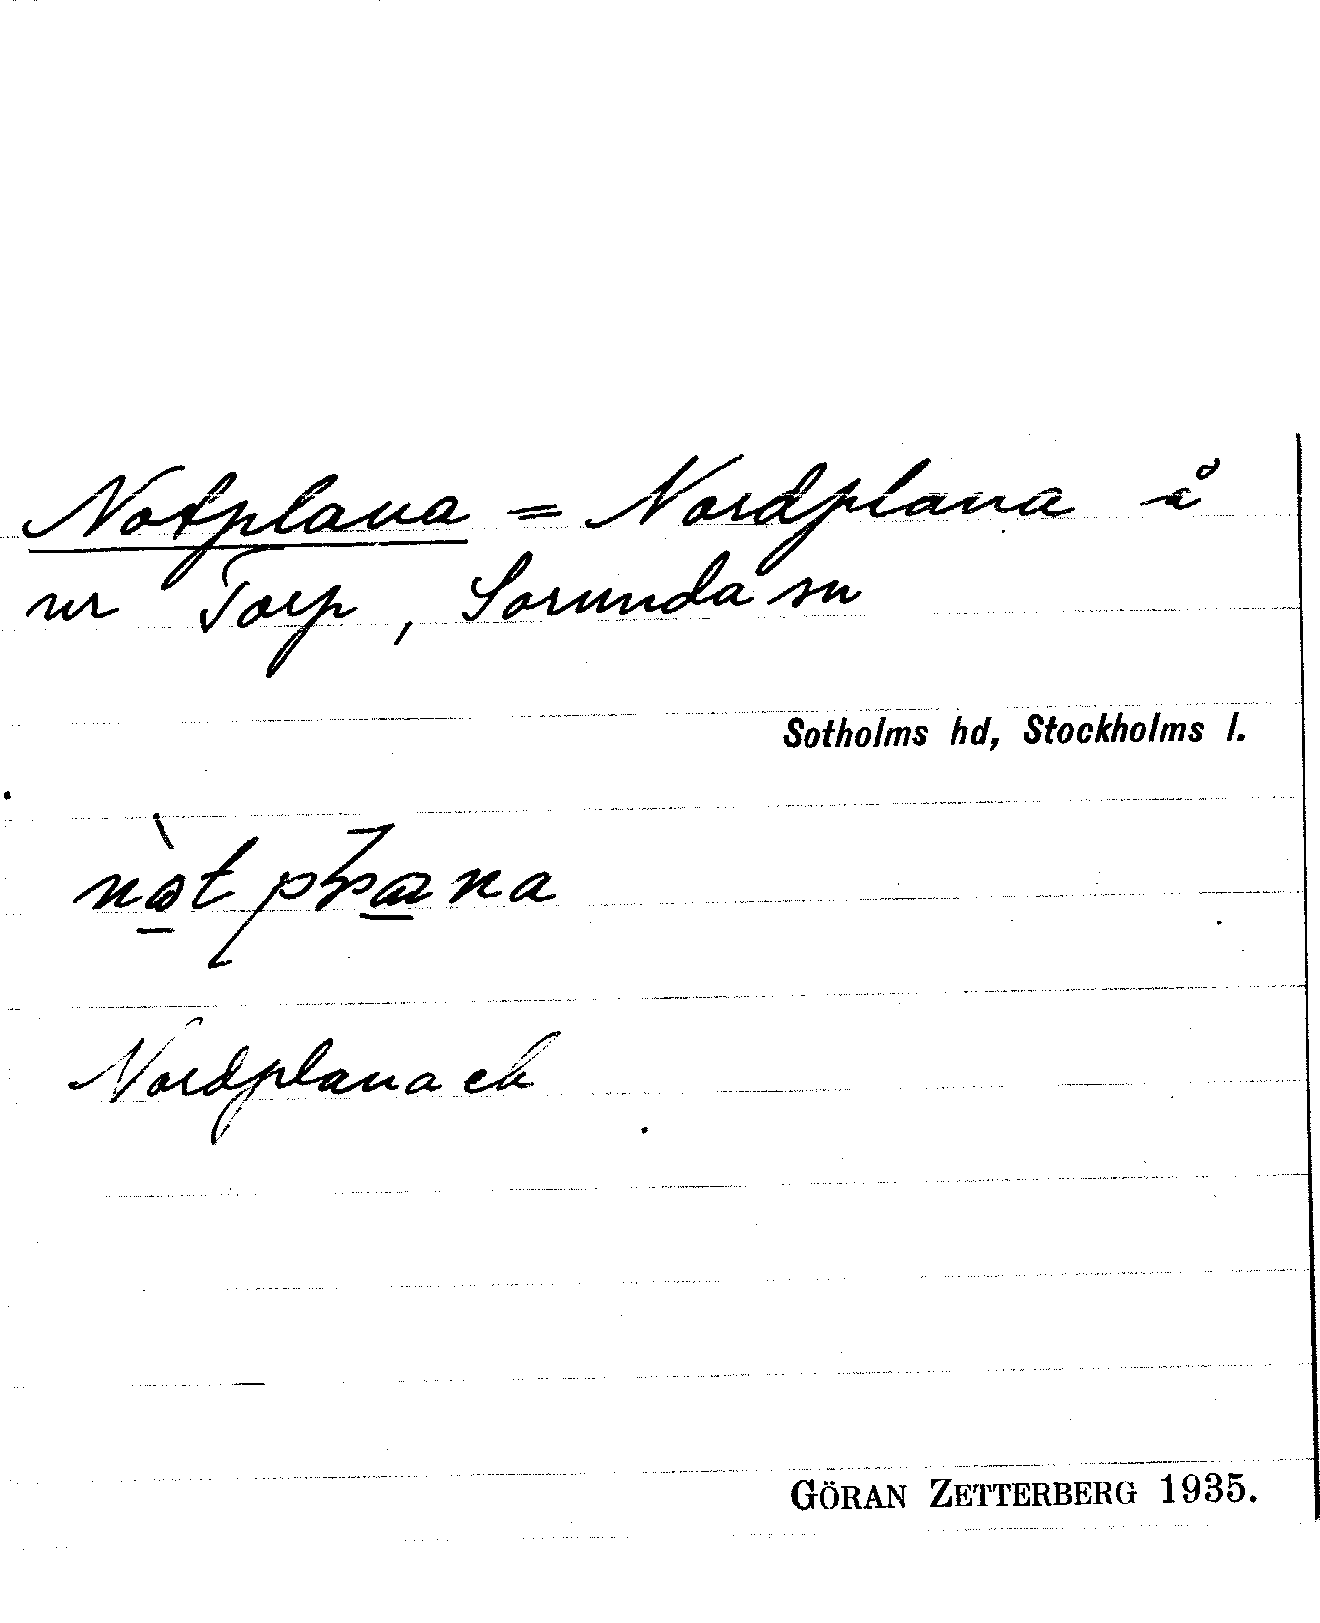 Notplana = Nordplana å
nr Torp, Sorunda sn
Sotholms hd, Stockholms l.
Nordplana ek
GÖRAN ZETTERBERG 1935.